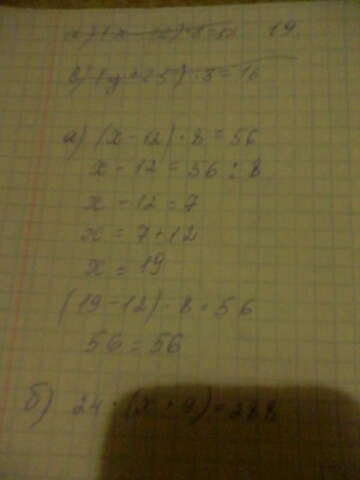 19
в) (у + 25) · 8 = 16
а) (x - 12) · 8 = 56
x - 12 = 56 : 8
x - 12 = 7
x = 7 + 12
x = 19
(19 - 12) · 8 = 56
56 = 56
б) 24 · (x + 9) = 288